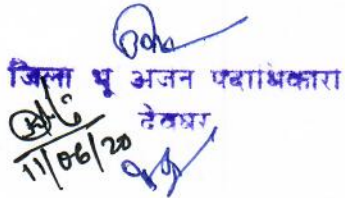 जिला भू अर्जन पदाधिकारी
देवघर
11/06/20